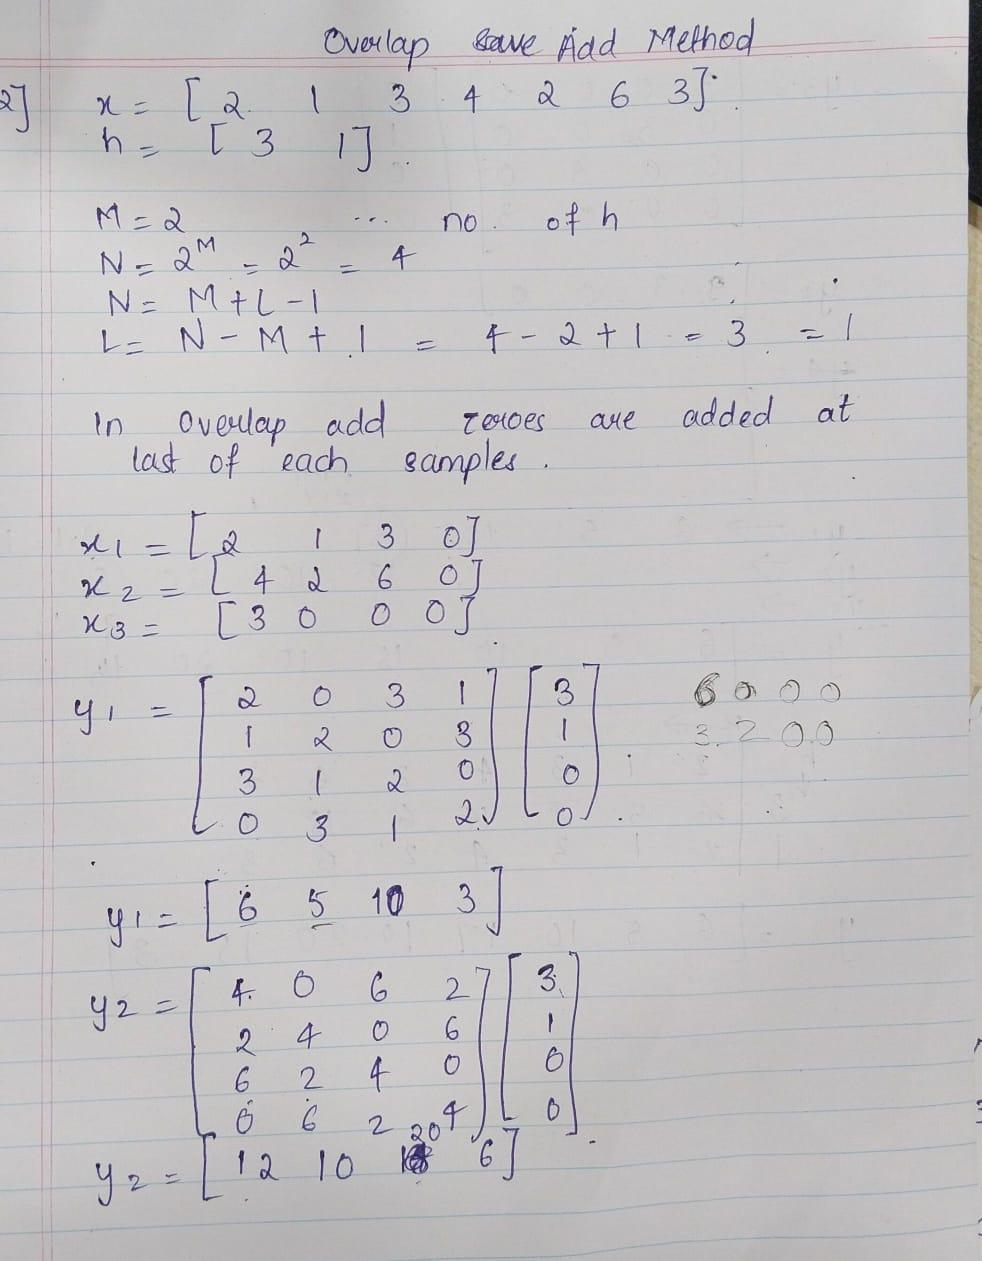 Overlap Save Add Method
2] x = [ 2 1 3 4 2 6 3]
h = [ 3 1]
M = 2 ... no. of h
N = 2^M = 2^2 = 4
N = M + L - 1
L = N - M + 1 = 4 - 2 + 1 = 3 = 1
In Overlap add zeroes are added at
last of each samples.
x1 = [2 1 3 0]
x2 = [4 2 6 0]
x3 = [3 0 0 0]
y1 = [2 0 3 1] [3] 6 0 0 0
1 2 0 3 1 3 2 0 0
3 1 2 0 0
0 3 1 2 0
y1 = [6 5 10 3]
y2 = [4 0 6 2] [3]
2 4 0 6 1
6 2 4 0 0
0 6 2 4 0
20
y2 = [12 10 6]